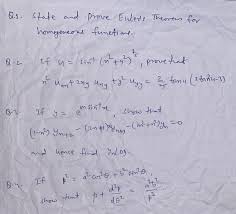 Q.1. State and Prove Euler's Theorem for
homogeneous functions.
Q.2. If u = sin⁻¹ (x³+y³)^, prove that
x² uₓₓ + 2xy uₓᵧ + y² uᵧᵧ = tan u (2 tan²u-3)
Q.3. If y = e^(m sin⁻¹x), show that
(1-x²) yₙ₊₂ - (2n+1)xyₙ₊₁ - (n²+m²)yₙ = 0
and hence find yₙ(0).
Q.4. If p² = a² cos²θ + b² sin²θ,
show that p + d²p/dθ² = a²b²/p³